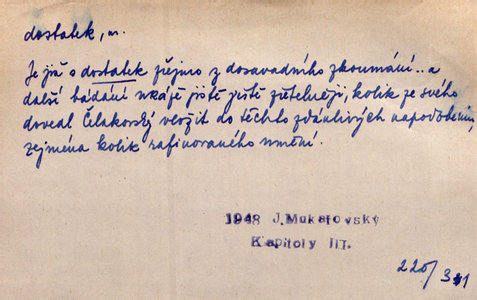 dostatek, m.
Je již s dostatek zřejmo z dosavadního zkoumání .. a
další bádání ukáže jistě ještě zřetelněji, kolik ze svého
dovedl Čelakovský vložit do těchto zdánlivých napodobenin,
zejména kolik rafinovaného umění.
1948 J.Mukařovský
Kapitoly III.
220/